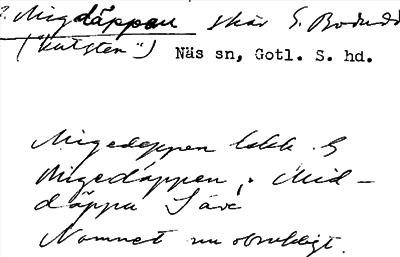 Migdäppen skär S. Bodudd
("Kulsten") Näs sn, Gotl. S. hd.
Migedäppen lokk. G
Migedäppen, Mid-
däppu Säve
Namnet nu obrukligt.